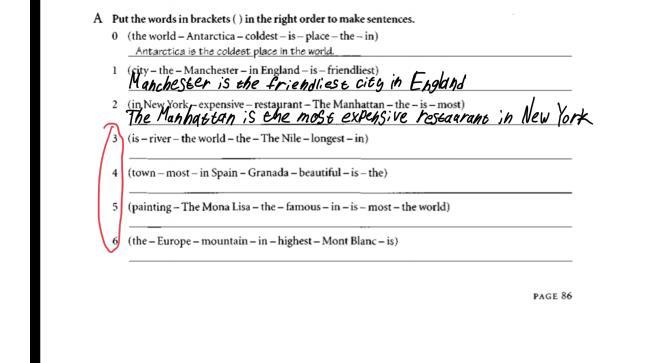 A Put the words in brackets ( ) in the right order to make sentences.
0 (the world – Antarctica – coldest – is – place – the – in)
Antarctica is the coldest place in the world.
1 (city – the – Manchester – in England – is – friendliest)
Manchester is the friendliest city in England
2 (in New York – expensive – restaurant – The Manhattan – the – is – most)
The Manhattan is the most expensive restaurant in New York
3 (is – river – the world – the – The Nile – longest – in)
4 (town – most – in Spain – Granada – beautiful – is – the)
5 (painting – The Mona Lisa – the – famous – in – is – most – the world)
6 (the – Europe – mountain – in – highest – Mont Blanc – is)
PAGE 86